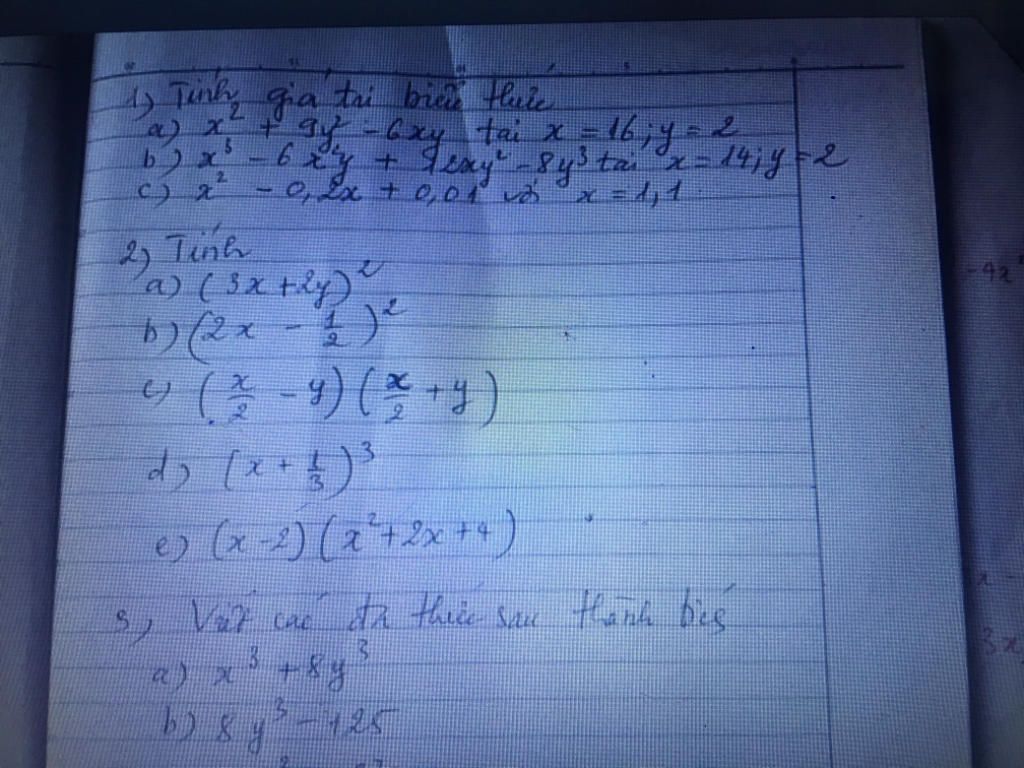 1) Tính giá tri biểu thức
a) x² + 9y² - 6xy tai x = 16; y = 2
b) x³ - 6x²y + 12xy² - 8y³ tai x = 14; y = 2
c) x² - 0,2x + 0,01 với x = 1,1
2) Tính
a) (3x + 2y)²
b) (2x - 1/2)²
c) (x/2 - y)(x/2 + y)
d) (x + 1/3)³
e) (x - 2)(x² + 2x + 4)
3) Viết các đa thức sau thành
a) x³ + 8y³
b) 8y³ - 125
-4x
x -
3x